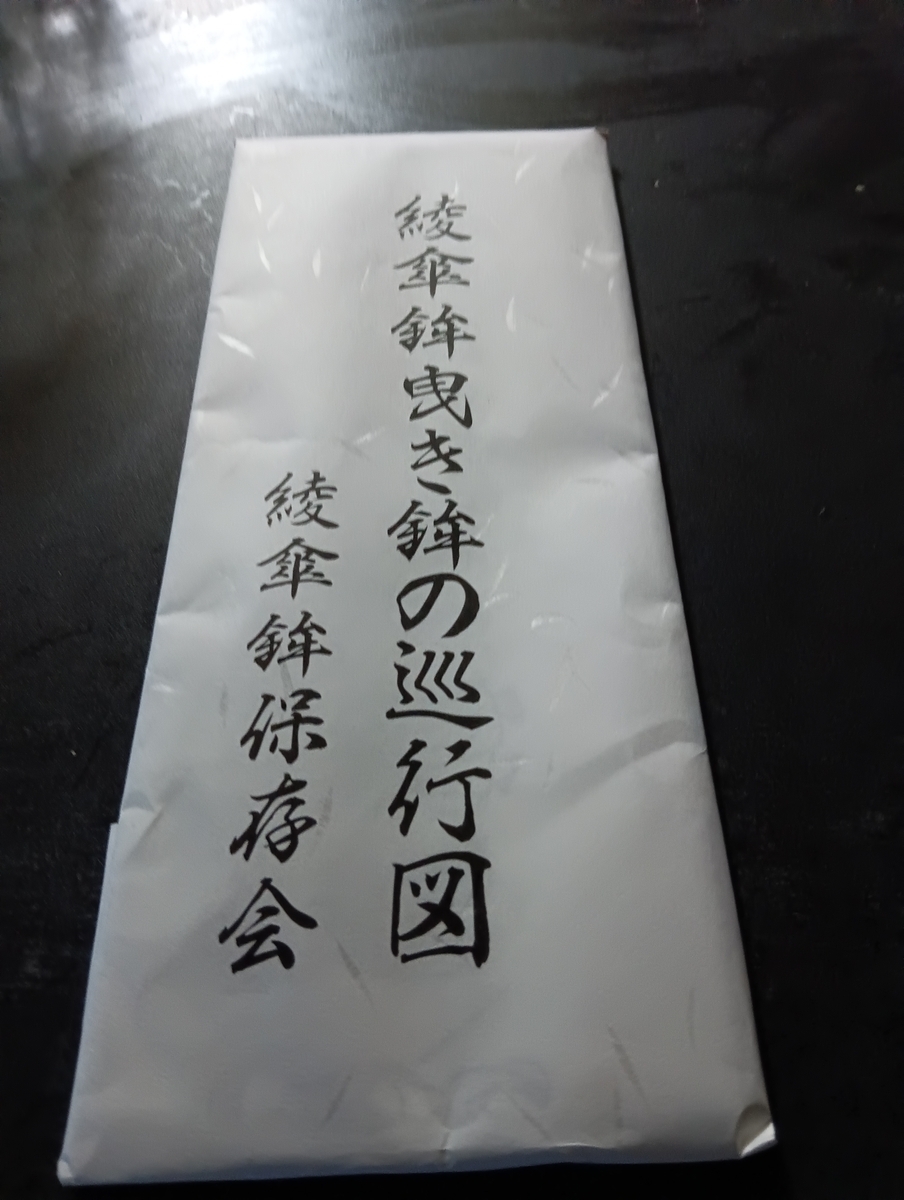 綾傘鉾曳き鉾の巡行図
綾傘鉾保存会